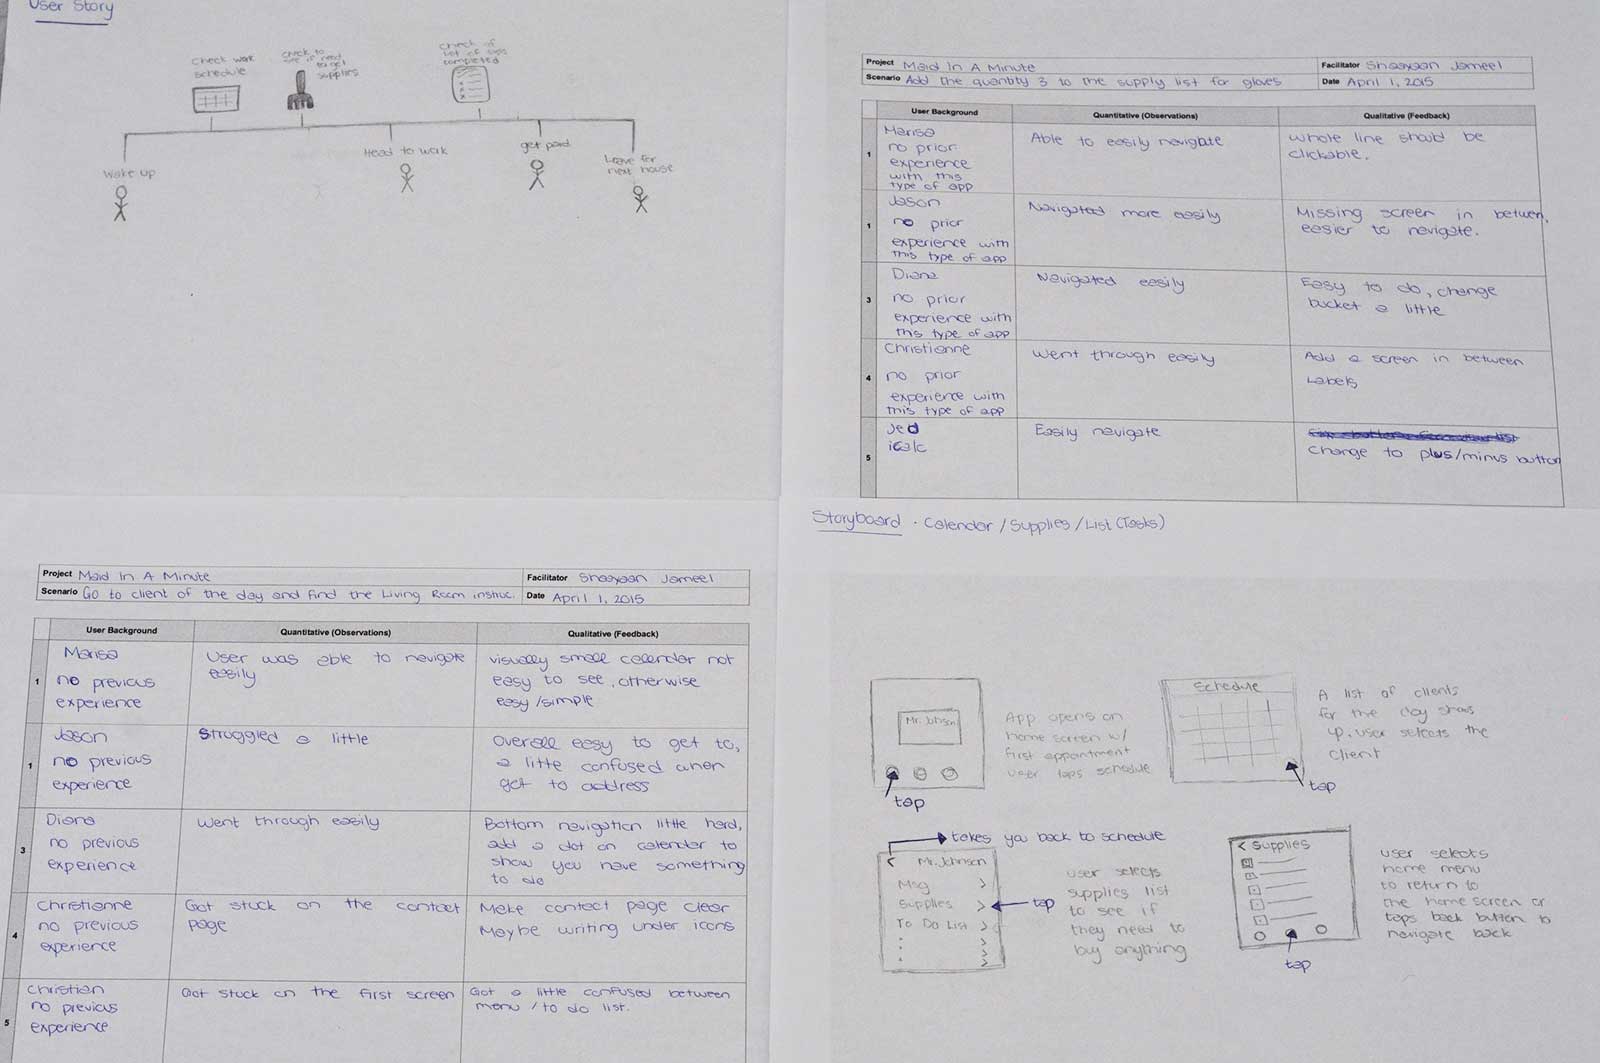 User Story
check work
schedule
check to
see if need
to get
supplies
check of
list of
completed
Wake up
Head to work
get paid
Leave for
next house
Project Maid In A Minute
Facilitator Shaayaan Jameel
Scenario Add the quantity 3 to the supply list for gloves
Date April 1, 2015
User Background
Quantitative (Observations)
Qualitative (Feedback)
1
Marisa
no prior
experience
with this
type of app
Able to easily navigate
Whole line should be
clickable.
1
Jason
no prior
experience with
this type of app
Navigated more easily
Missing screen in between,
easier to navigate.
3
Diana
no prior
experience with
this type of app
Navigated easily
Easy to do, change
bucket a little
4
Christianne
no prior
experience with
this type of app
Went through easily
Add a screen in between
Labels
5
Jed
Easily navigate
Change to plus/minus button
Project Maid In A Minute
Facilitator Shaayaan Jameel
Scenario Go to client of the day and find the Living Room instruc.
Date April 1, 2015
User Background
Quantitative (Observations)
Qualitative (Feedback)
1
Marisa
no previous
experience
User was able to navigate
easily
visually small calendar not
easy to see, otherwise
easy/simple
1
Jason
no previous
experience
Struggled a little
Overall easy to get to,
a little confused when
got to address
3
Diana
no previous
experience
Went through easily
Bottom navigation little hard,
add a dot on calendar to
show you have something
to do
4
Christianne
no previous
experience
Got stuck on the contact
page
Make contact page clear
Maybe writing under icons
5
Christian
no previous
experience
Got stuck on the first screen
Got a little confused between
menu / to do list.
Storyboard · Calendar/Supplies/List (Tasks)
Mr. Johnson
tap
App opens on
home screen w/
first appointment
user taps schedule
Schedule
tap
A list of clients
for the day shows
up. user selects the
client
takes you back to schedule
< Mr. Johnson
Msg >
Supplies >
To Do List >
tap
user selects
supplies list
to see if
they need to
buy anything
< Supplies
tap
user selects
home menu
to return to
the home screen or
taps back button to
navigate back